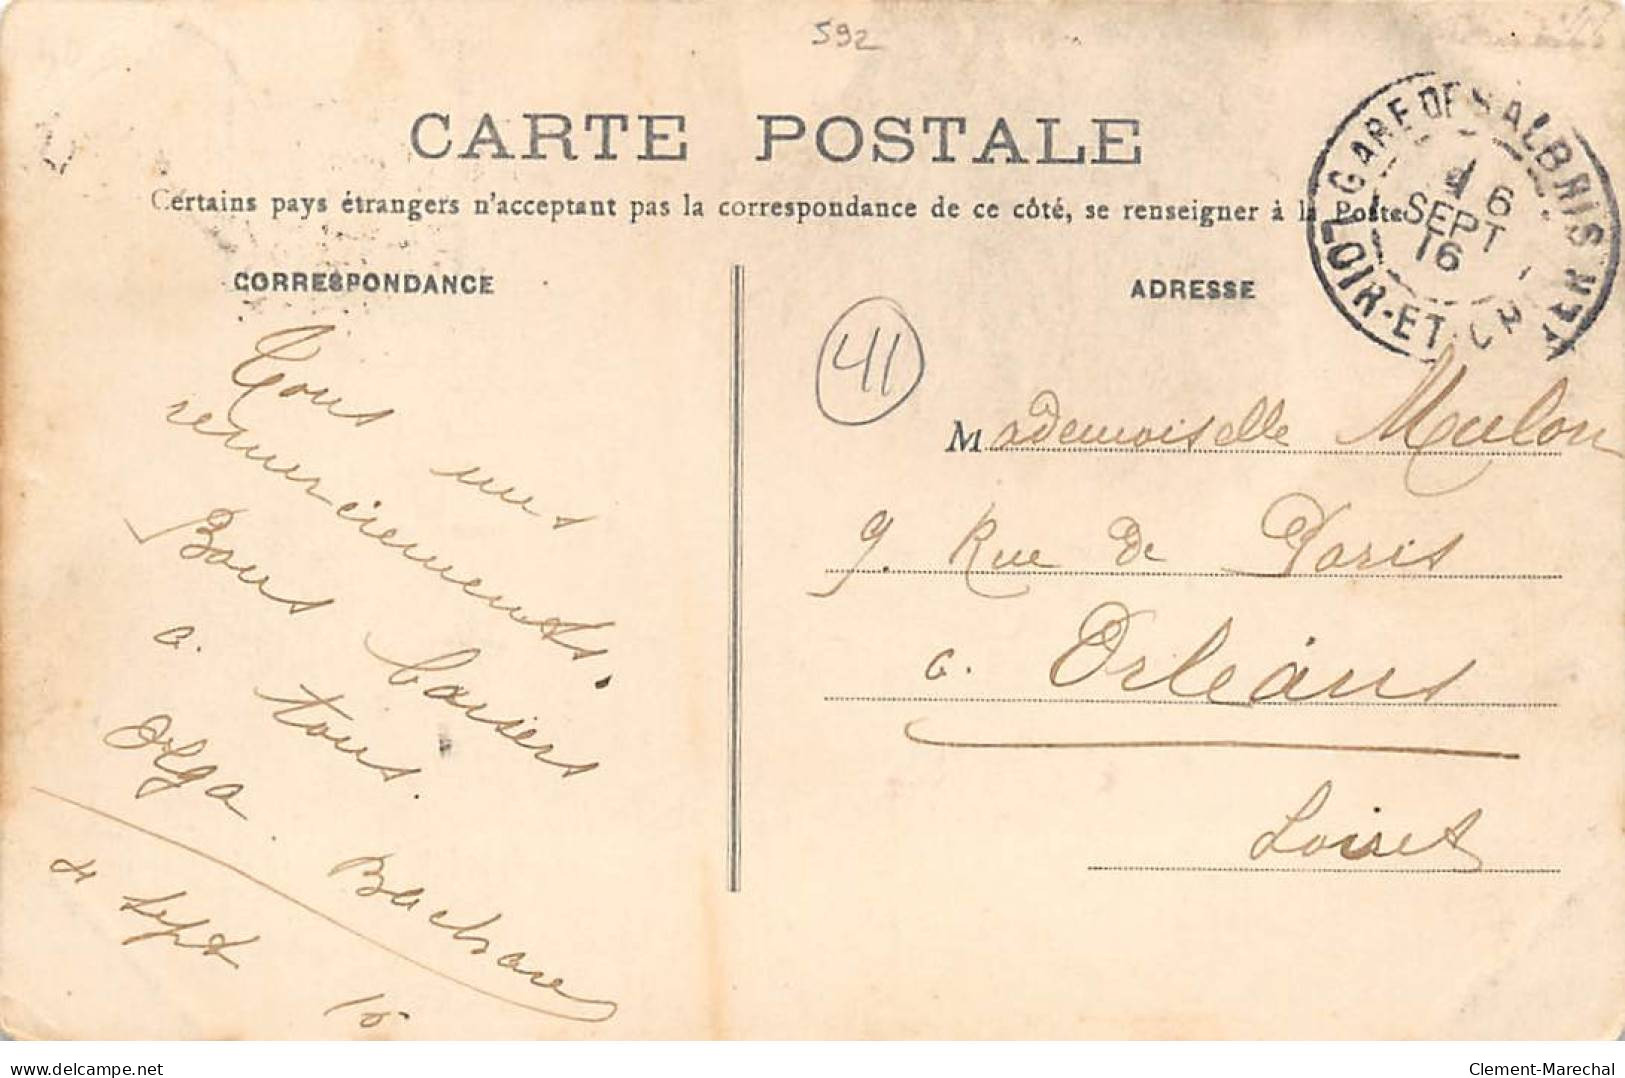 592
CARTE POSTALE
Certains pays étrangers n'acceptant pas la correspondance de ce côté, se renseigner à la Poste
GARE DE SALBRIS
6
SEPT
16
LOIR-ET-CHER
CORRESPONDANCE
ADRESSE
41
Tous mes
remerciements.
Bons baisers
à tous.
Olga
4 Sept
Mademoiselle Moulon
9. Rue de Paris
à Orléans
Loiret
delcampe.net
Clement-Marechal